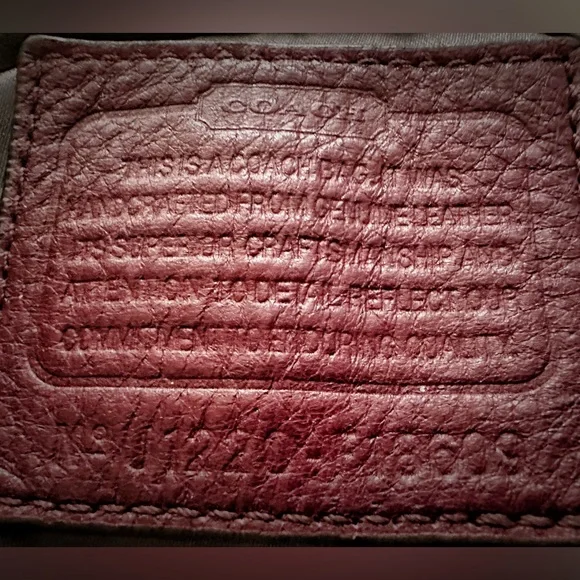 COACH
THIS IS A COACH BAG. IT WAS
HANDCRAFTED FROM GENUINE LEATHER.
ITS SUPERIOR CRAFTSMANSHIP AND
ATTENTION TO DETAIL REFLECT OUR
COMMITMENT TO ENDURING QUALITY.
Nº 11220-